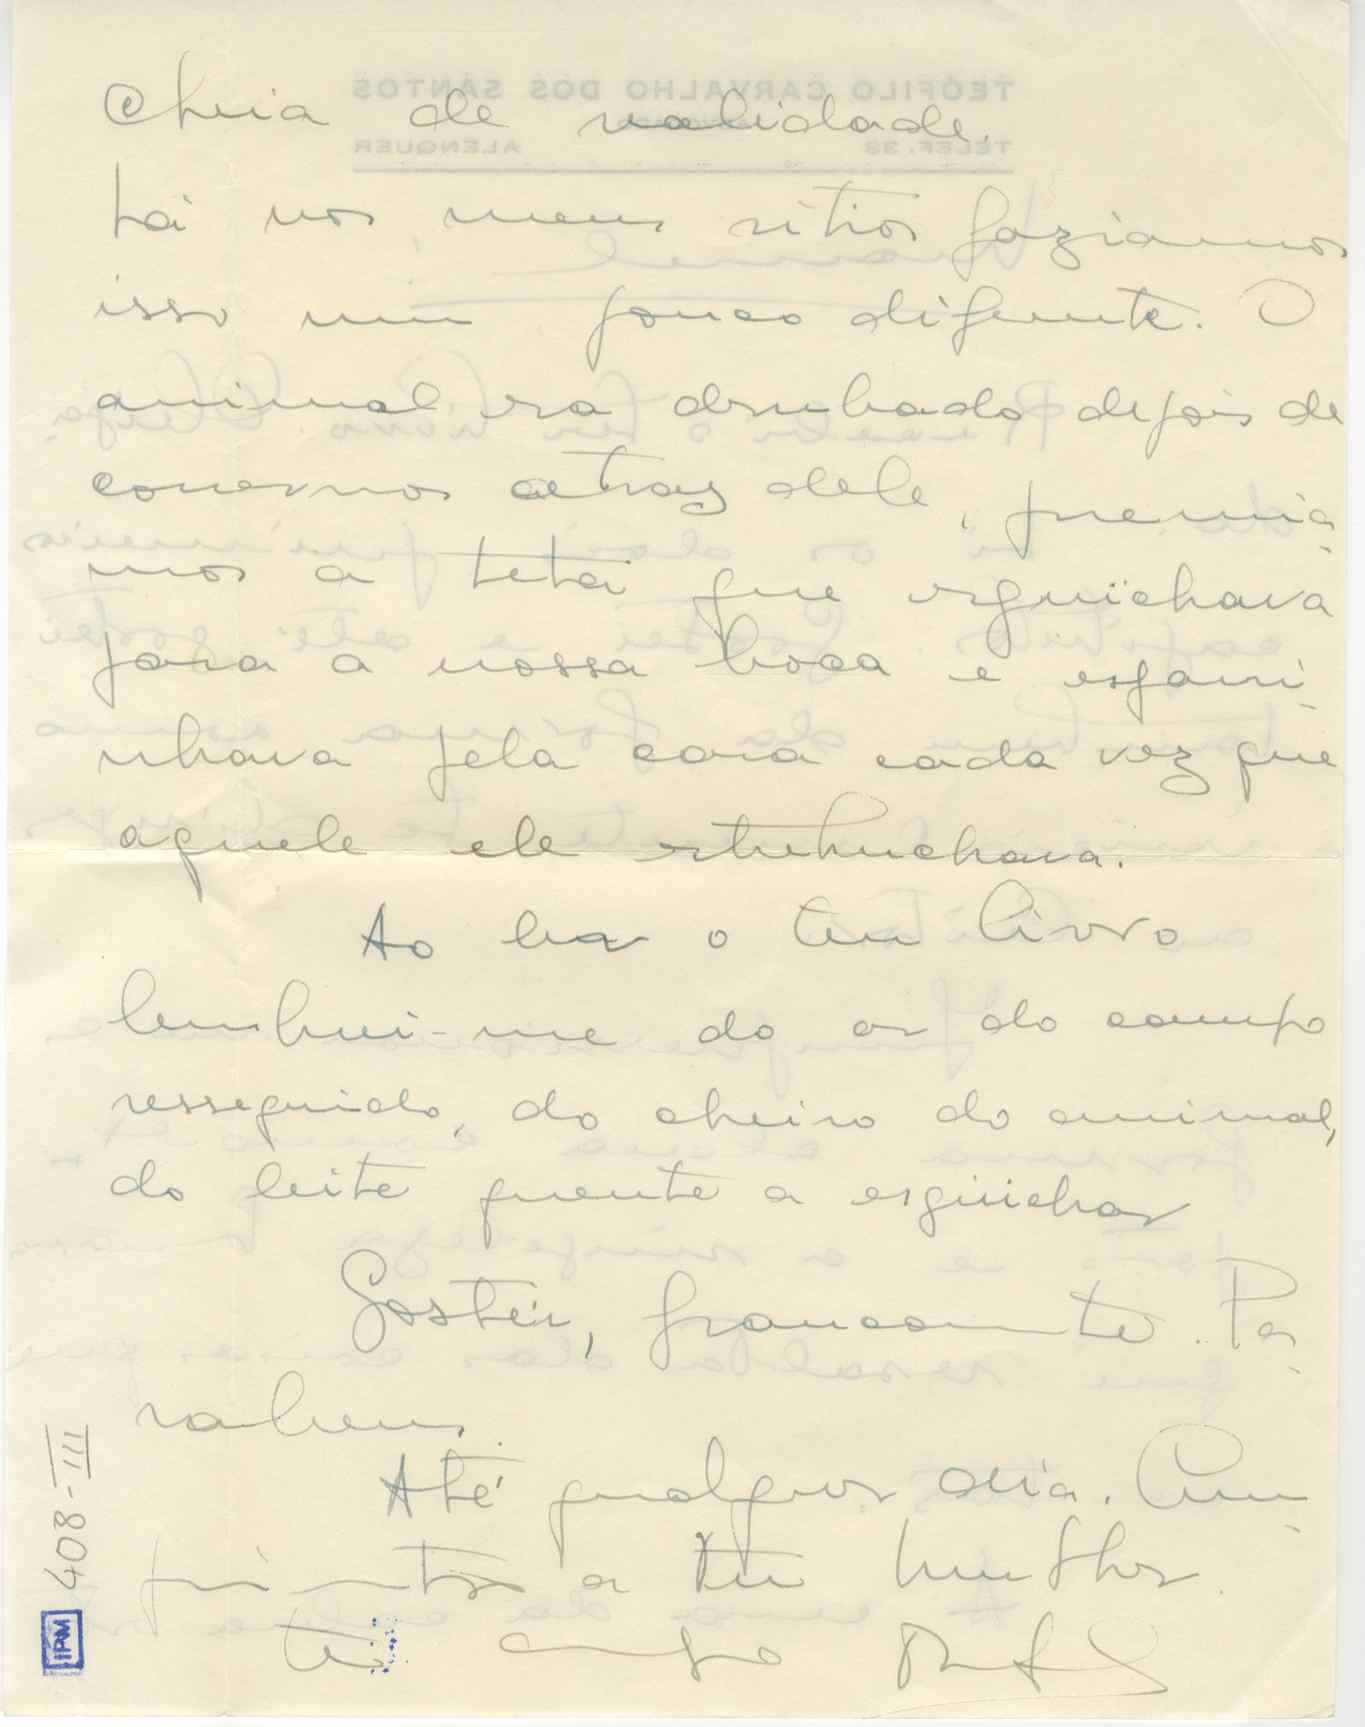 cheia de realidade.
Lá nos meus sitios faziamos
isso um pouco diferente. O
animal era derrubado depois de
corrermos atraz dele, premia-
mos a teta que esguichava
para a nossa boca e
nhava pela cara cada vez que
aquele ele estrebuchava.
Ao ler o teu livro
lembrei-me do ar do campo
resseguido, do cheiro do animal,
do leite quente a esguichar
Gostei, francamente. Pa-
rabens.
Até qualquer dia. Cum-
primentos a tua mulher.
teu amigo
408-III
IPM
TEÓFILO CARVALHO DOS SANTOS
TELEF. 38 ALENQUER